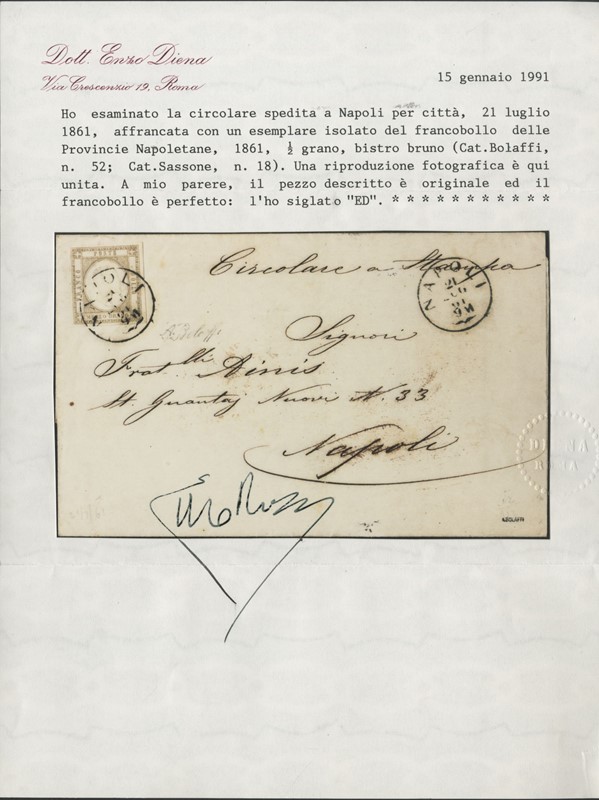 Dott. Enzo Diena
Via Crescenzio 19, Roma
15 gennaio 1991
Ho esaminato la circolare spedita a Napoli per città, 21 luglio
1861, affrancata con un esemplare isolato del francobollo delle
Provincie Napoletane, 1861, ½ grano, bistro bruno (Cat.Bolaffi,
n. 52; Cat.Sassone, n. 18). Una riproduzione fotografica è qui
unita. A mio parere, il pezzo descritto è originale ed il
francobollo è perfetto: l'ho siglato "ED". * * * * * * * * * * *
Circolare a Stampa
NAPOLI
21
Signori
Fratelli Ainis
St. Guantaj Nuovi N. 33
Napoli
DIENA
ROMA